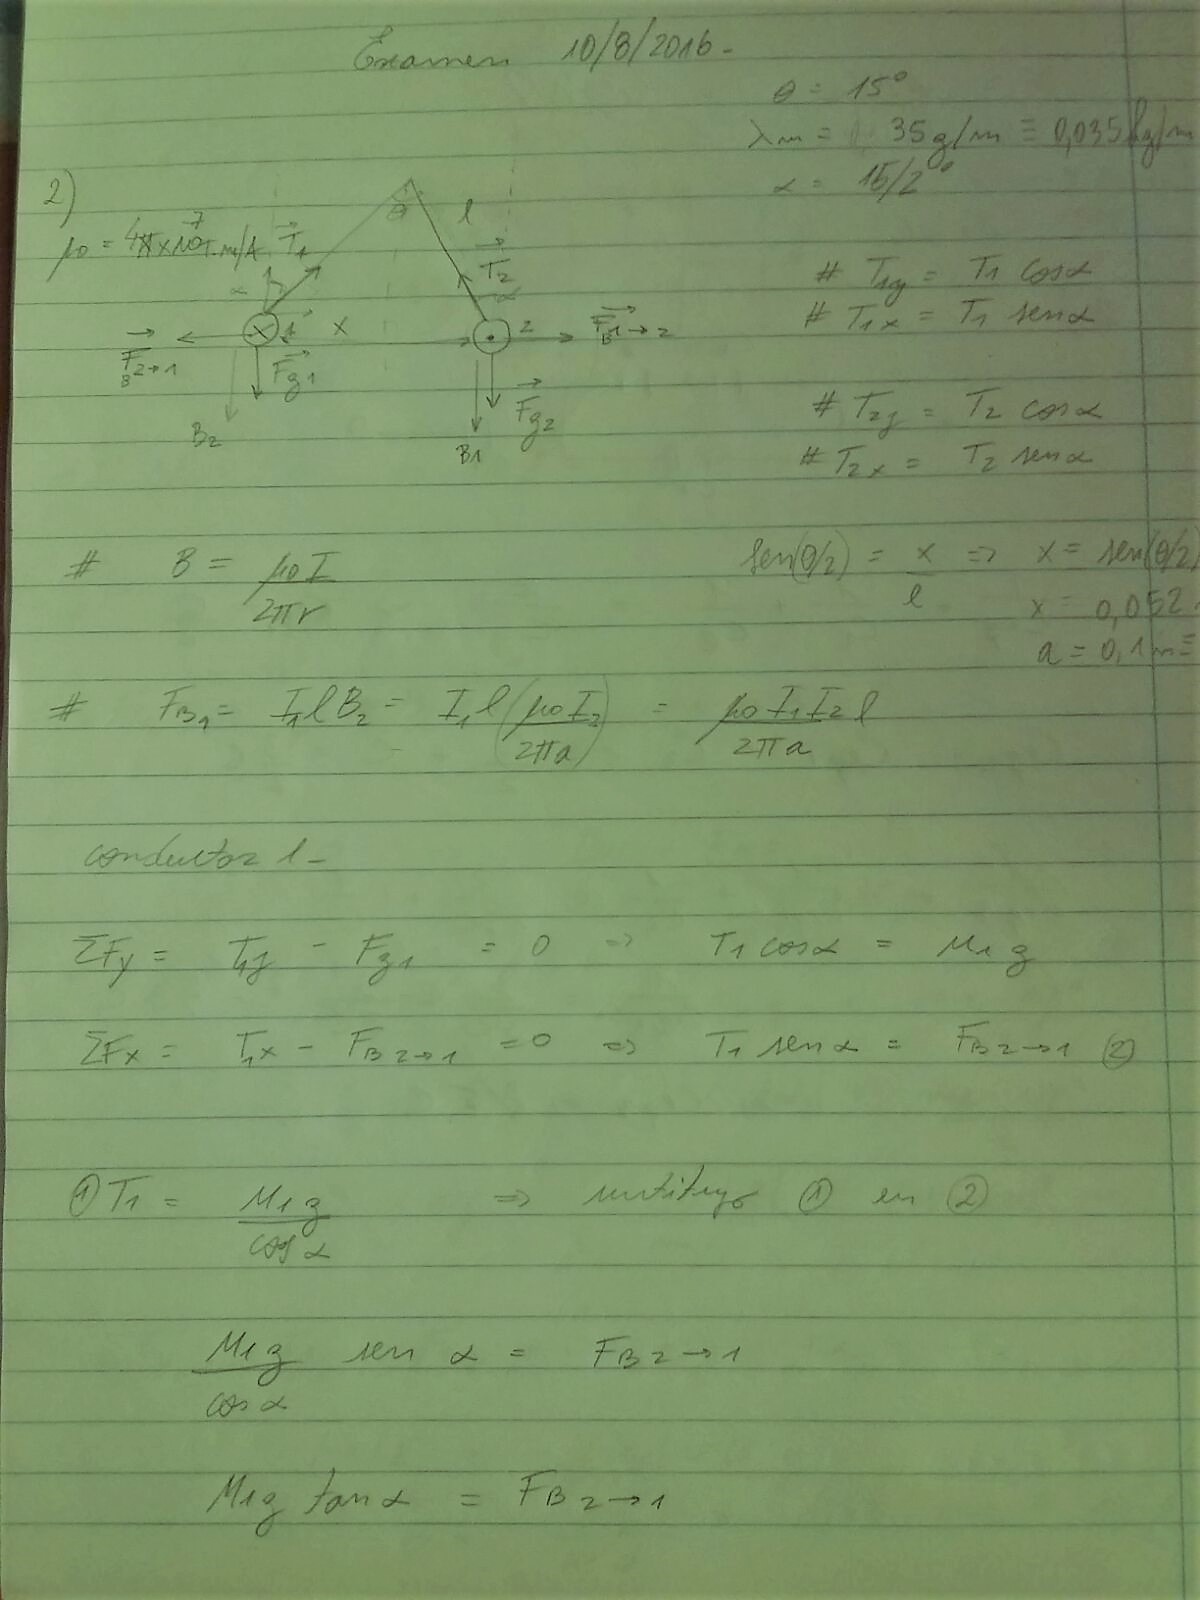 Examen 10/8/2016-
θ = 15°
λm = 35g/m ≡ 0,035 kg/m
α = 15/2 °
2)
μ0 = 4π×10⁻⁷ T.m/A
θ l
T⃗1 T⃗2
α α
x 1 x 2
F⃗B2→1 F⃗g1 F⃗B1→2
B2 F⃗g2
B1
# T1y = T1 cosα
# T1x = T1 senα
# T2y = T2 cosα
# T2x = T2 senα
# B = μ0 I / 2πr
sen(θ/2) = x/l => x = sen(θ/2)
x = 0,052
a = 0,1m ≡
# FB1 = I1 l B2 = I1 l (μ0 I2 / 2πa) = μ0 I1 I2 l / 2πa
conductor 1-
ΣFy = T1y - Fg1 = 0 => T1 cosα = M1g
ΣFx = T1x - FB2→1 = 0 => T1 senα = FB2→1 (2)
(1) T1 = M1g / cosα => sustituyo (1) en (2)
M1g / cosα sen α = FB2→1
M1g tanα = FB2→1